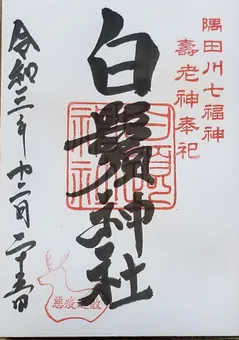 隅田川七福神
壽老神奉祀
白鬚神社
令和三年十二月二十五日
悪疫退散